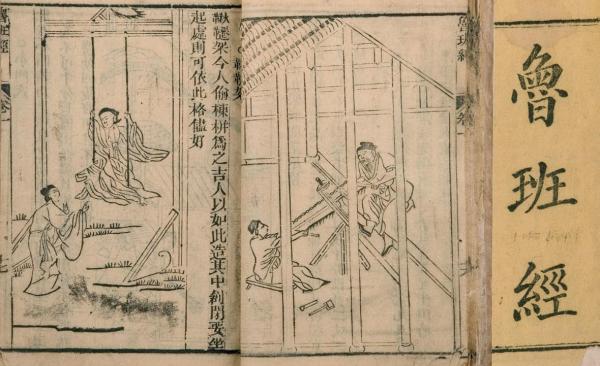 魯班經
魯班經
鞦韆架今人偷棟栟爲之吉人以如此造其中創閒要坐
起處則可依此格儘好
魯班經
卷一